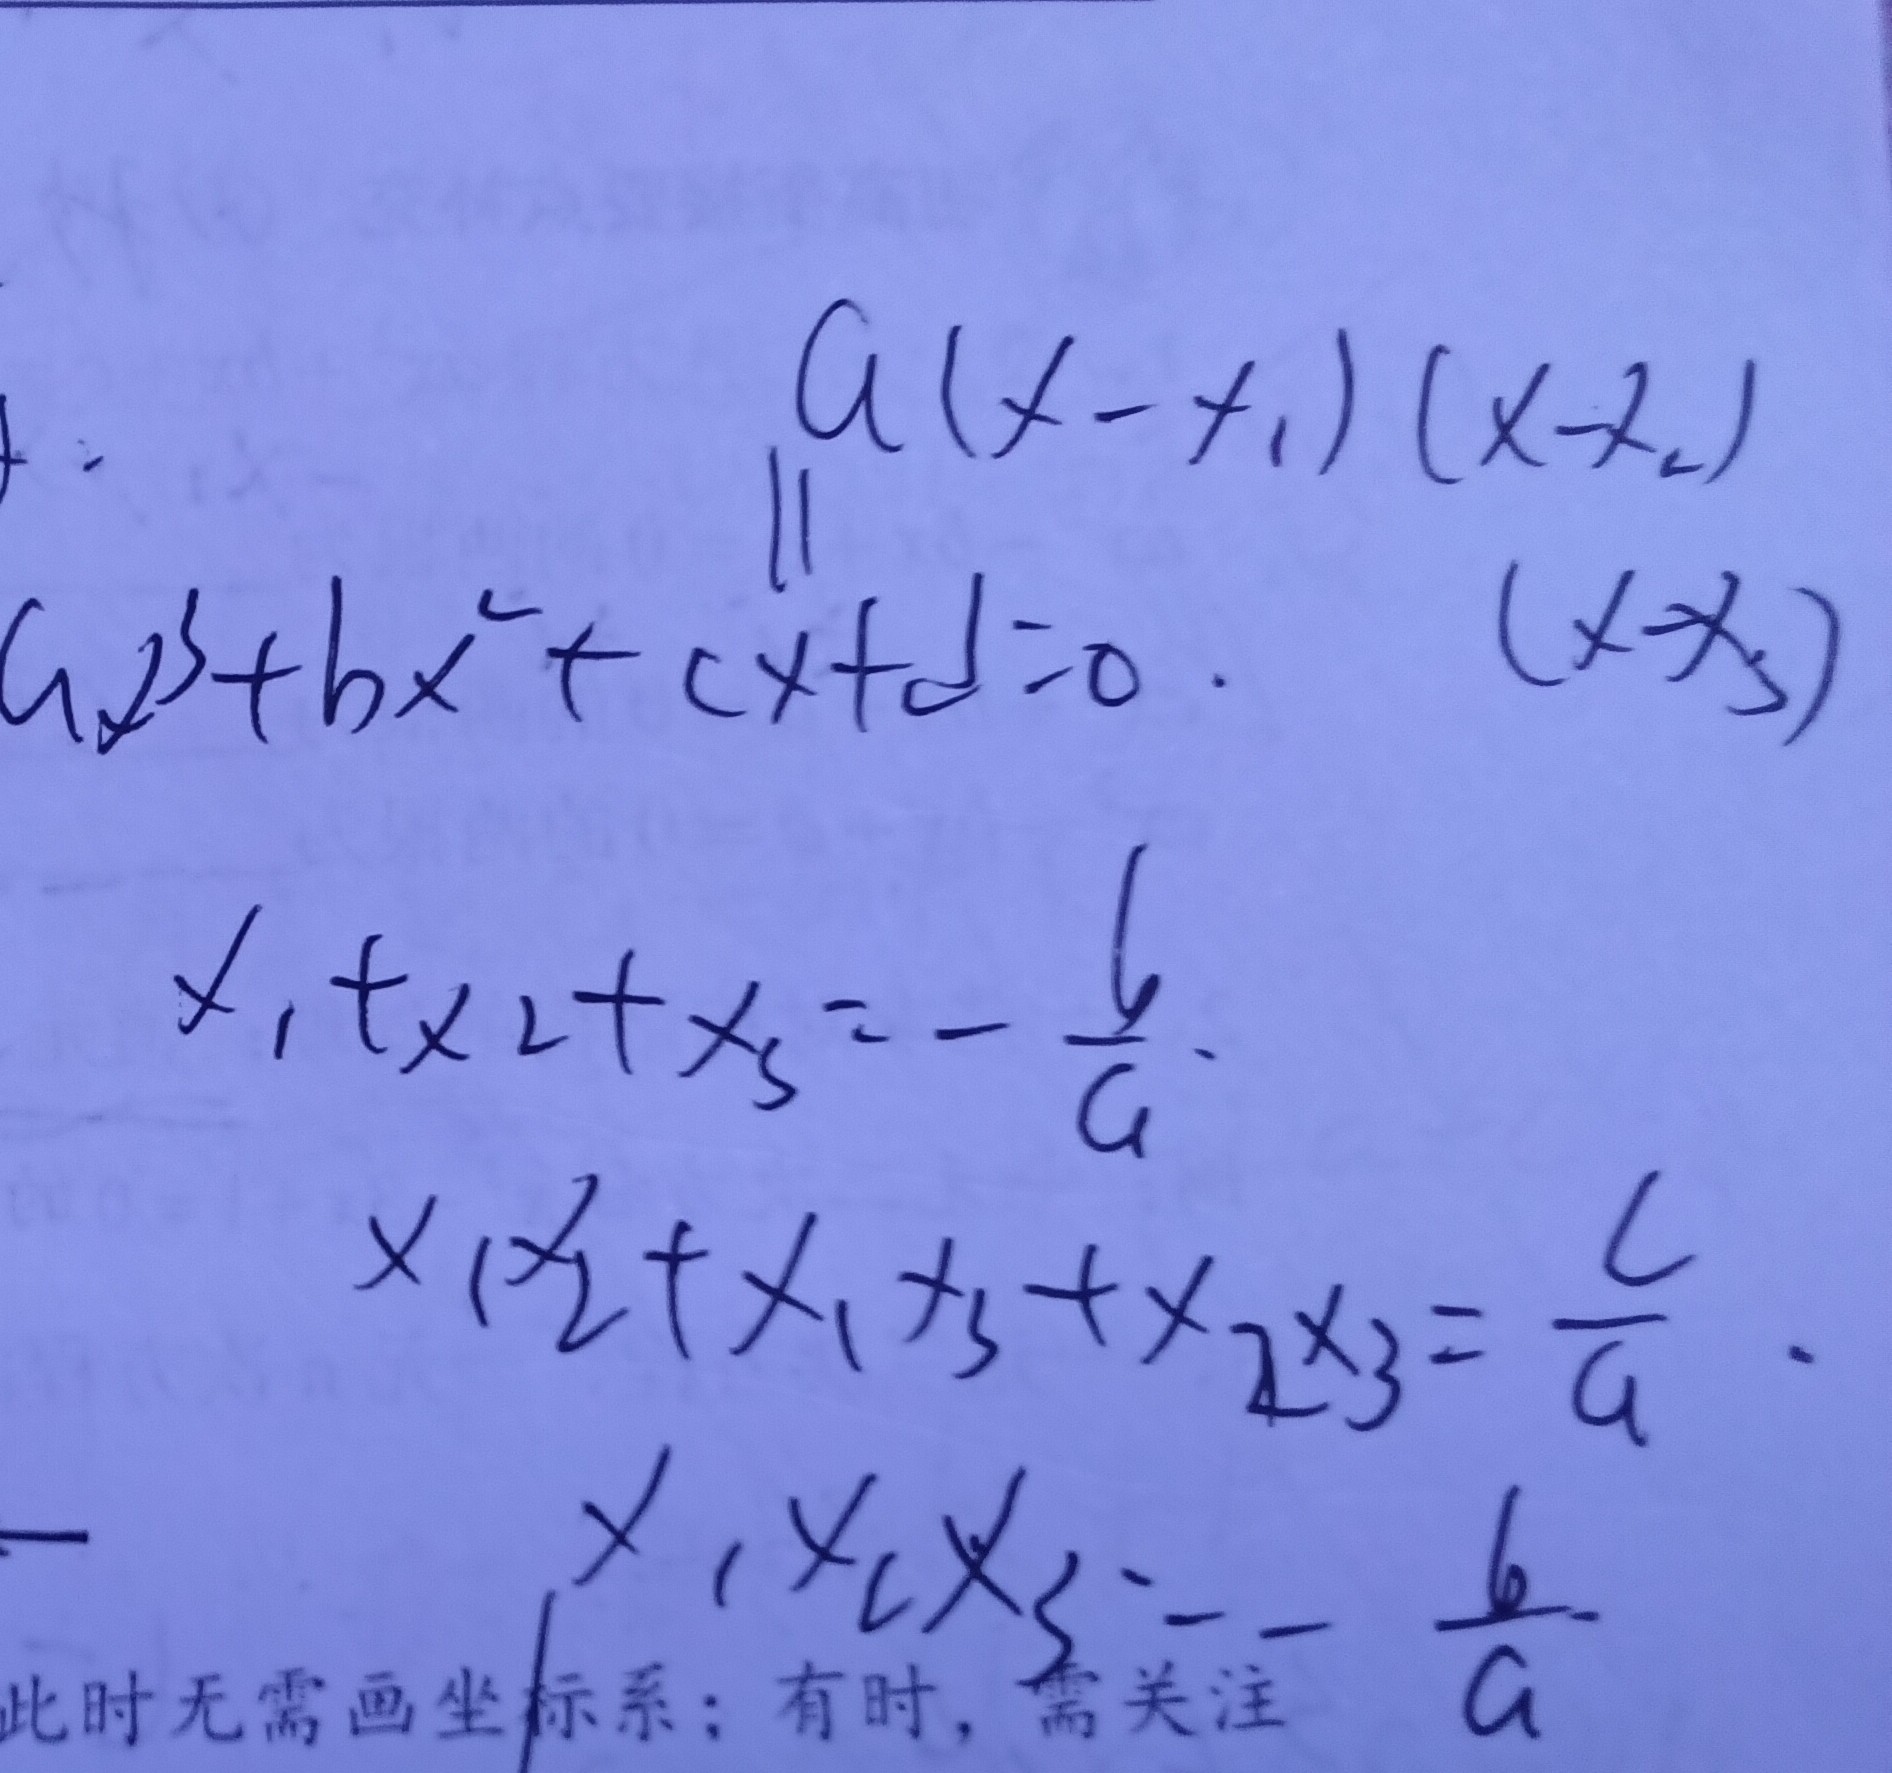 a(x-x₁)(x-x₂)
||
(x-x₃)
ax³+bx²+cx+d=0.
x₁+x₂+x₃=-b/a.
x₁x₂+x₁x₃+x₂x₃=c/a.
x₁x₂x₃=-b/a
此时无需画坐标系；有时，需关注